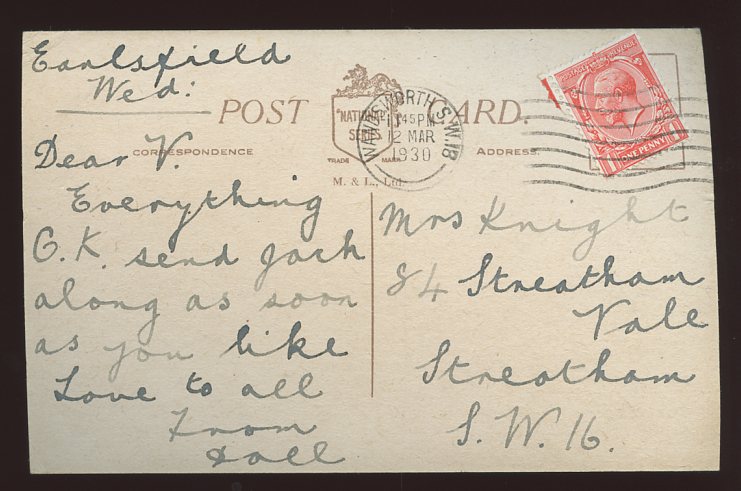 Earlsfield
Wed:
POST CARD.
"NATIONAL"
SERIES
TRADE MARK
WANDSWORTH S.W.18
45PM
12 MAR
1930
POSTAGE REVENUE
ONE PENNY
CORRESPONDENCE
ADDRESS
M. & L., Ltd.
Dear V.
Everything
O.K. send Jack
along as soon
as you like
Love to all
From
Doll
Mrs Knight
84 Streatham
Vale
Streatham
S.W. 16.